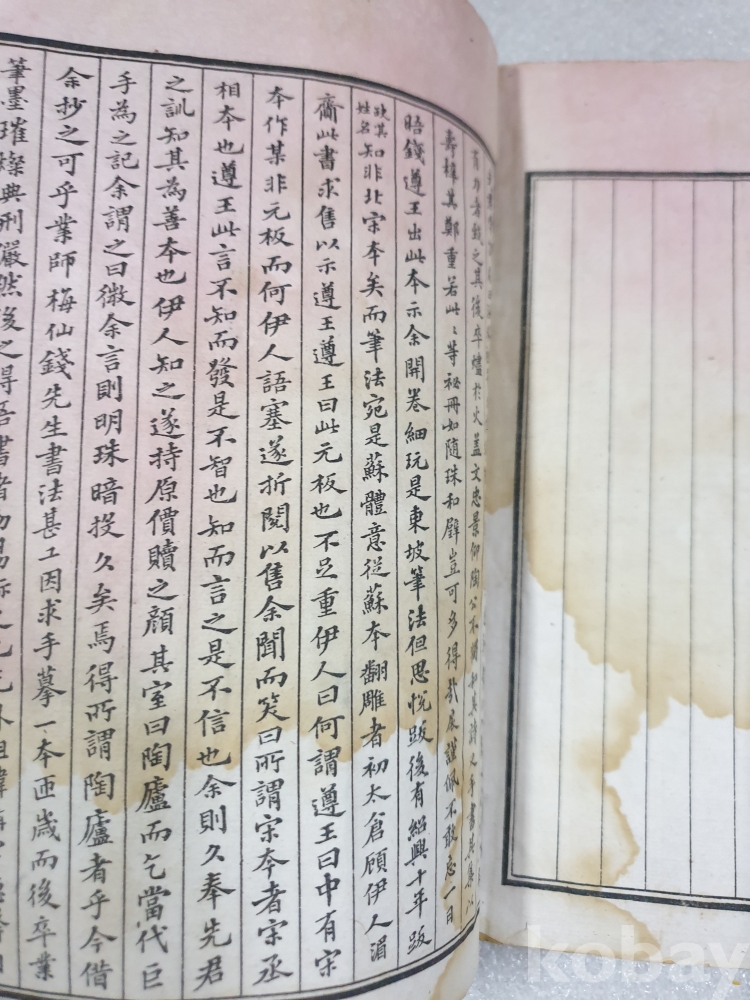 有力者致之其後卒燼於火蓋文忠景仰陶公不獨和其詩又手書其集以
壽梓其鄭重若此此等秘冊如隨珠和璧豈可多得哉扆謹佩不敢忘一日
晤錢遵王出此本示余開卷細玩是東坡筆法但思悅跋後有紹興十年跋
缺其姓名知非北宋本矣而筆法宛是蘇體意從蘇本翻雕者初太倉顧伊人湄
齎此書求售以示遵王遵王曰此元板也不足重伊人曰何謂遵王曰中有宋
本作某非元板而何伊人語塞遂折閱以售余聞而笑曰所謂宋本者宋丞
相本也遵王此言不知而發是不智也知而言之是不信也余則久奉先君
之訓知其為善本也伊人知之遂持原價贖之顏其室曰陶廬而乞當代巨
手為之記余謂之曰微余言則明珠暗投久矣焉得所謂陶廬者乎今借
余抄之可乎業師梅仙錢先生書法甚工因求手摹一本匝歲而後卒業
筆墨璀燦典刑儼然後之得吾書者勿易
kobay